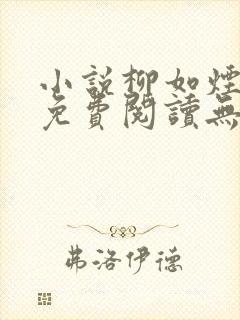 小說柳如煙
免費閱讀無
弗洛伊德